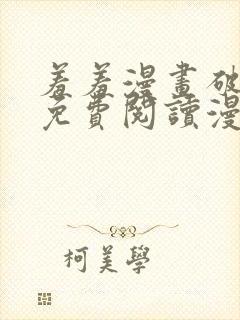 羞羞漫畫破
免費閱讀漫
柯美學